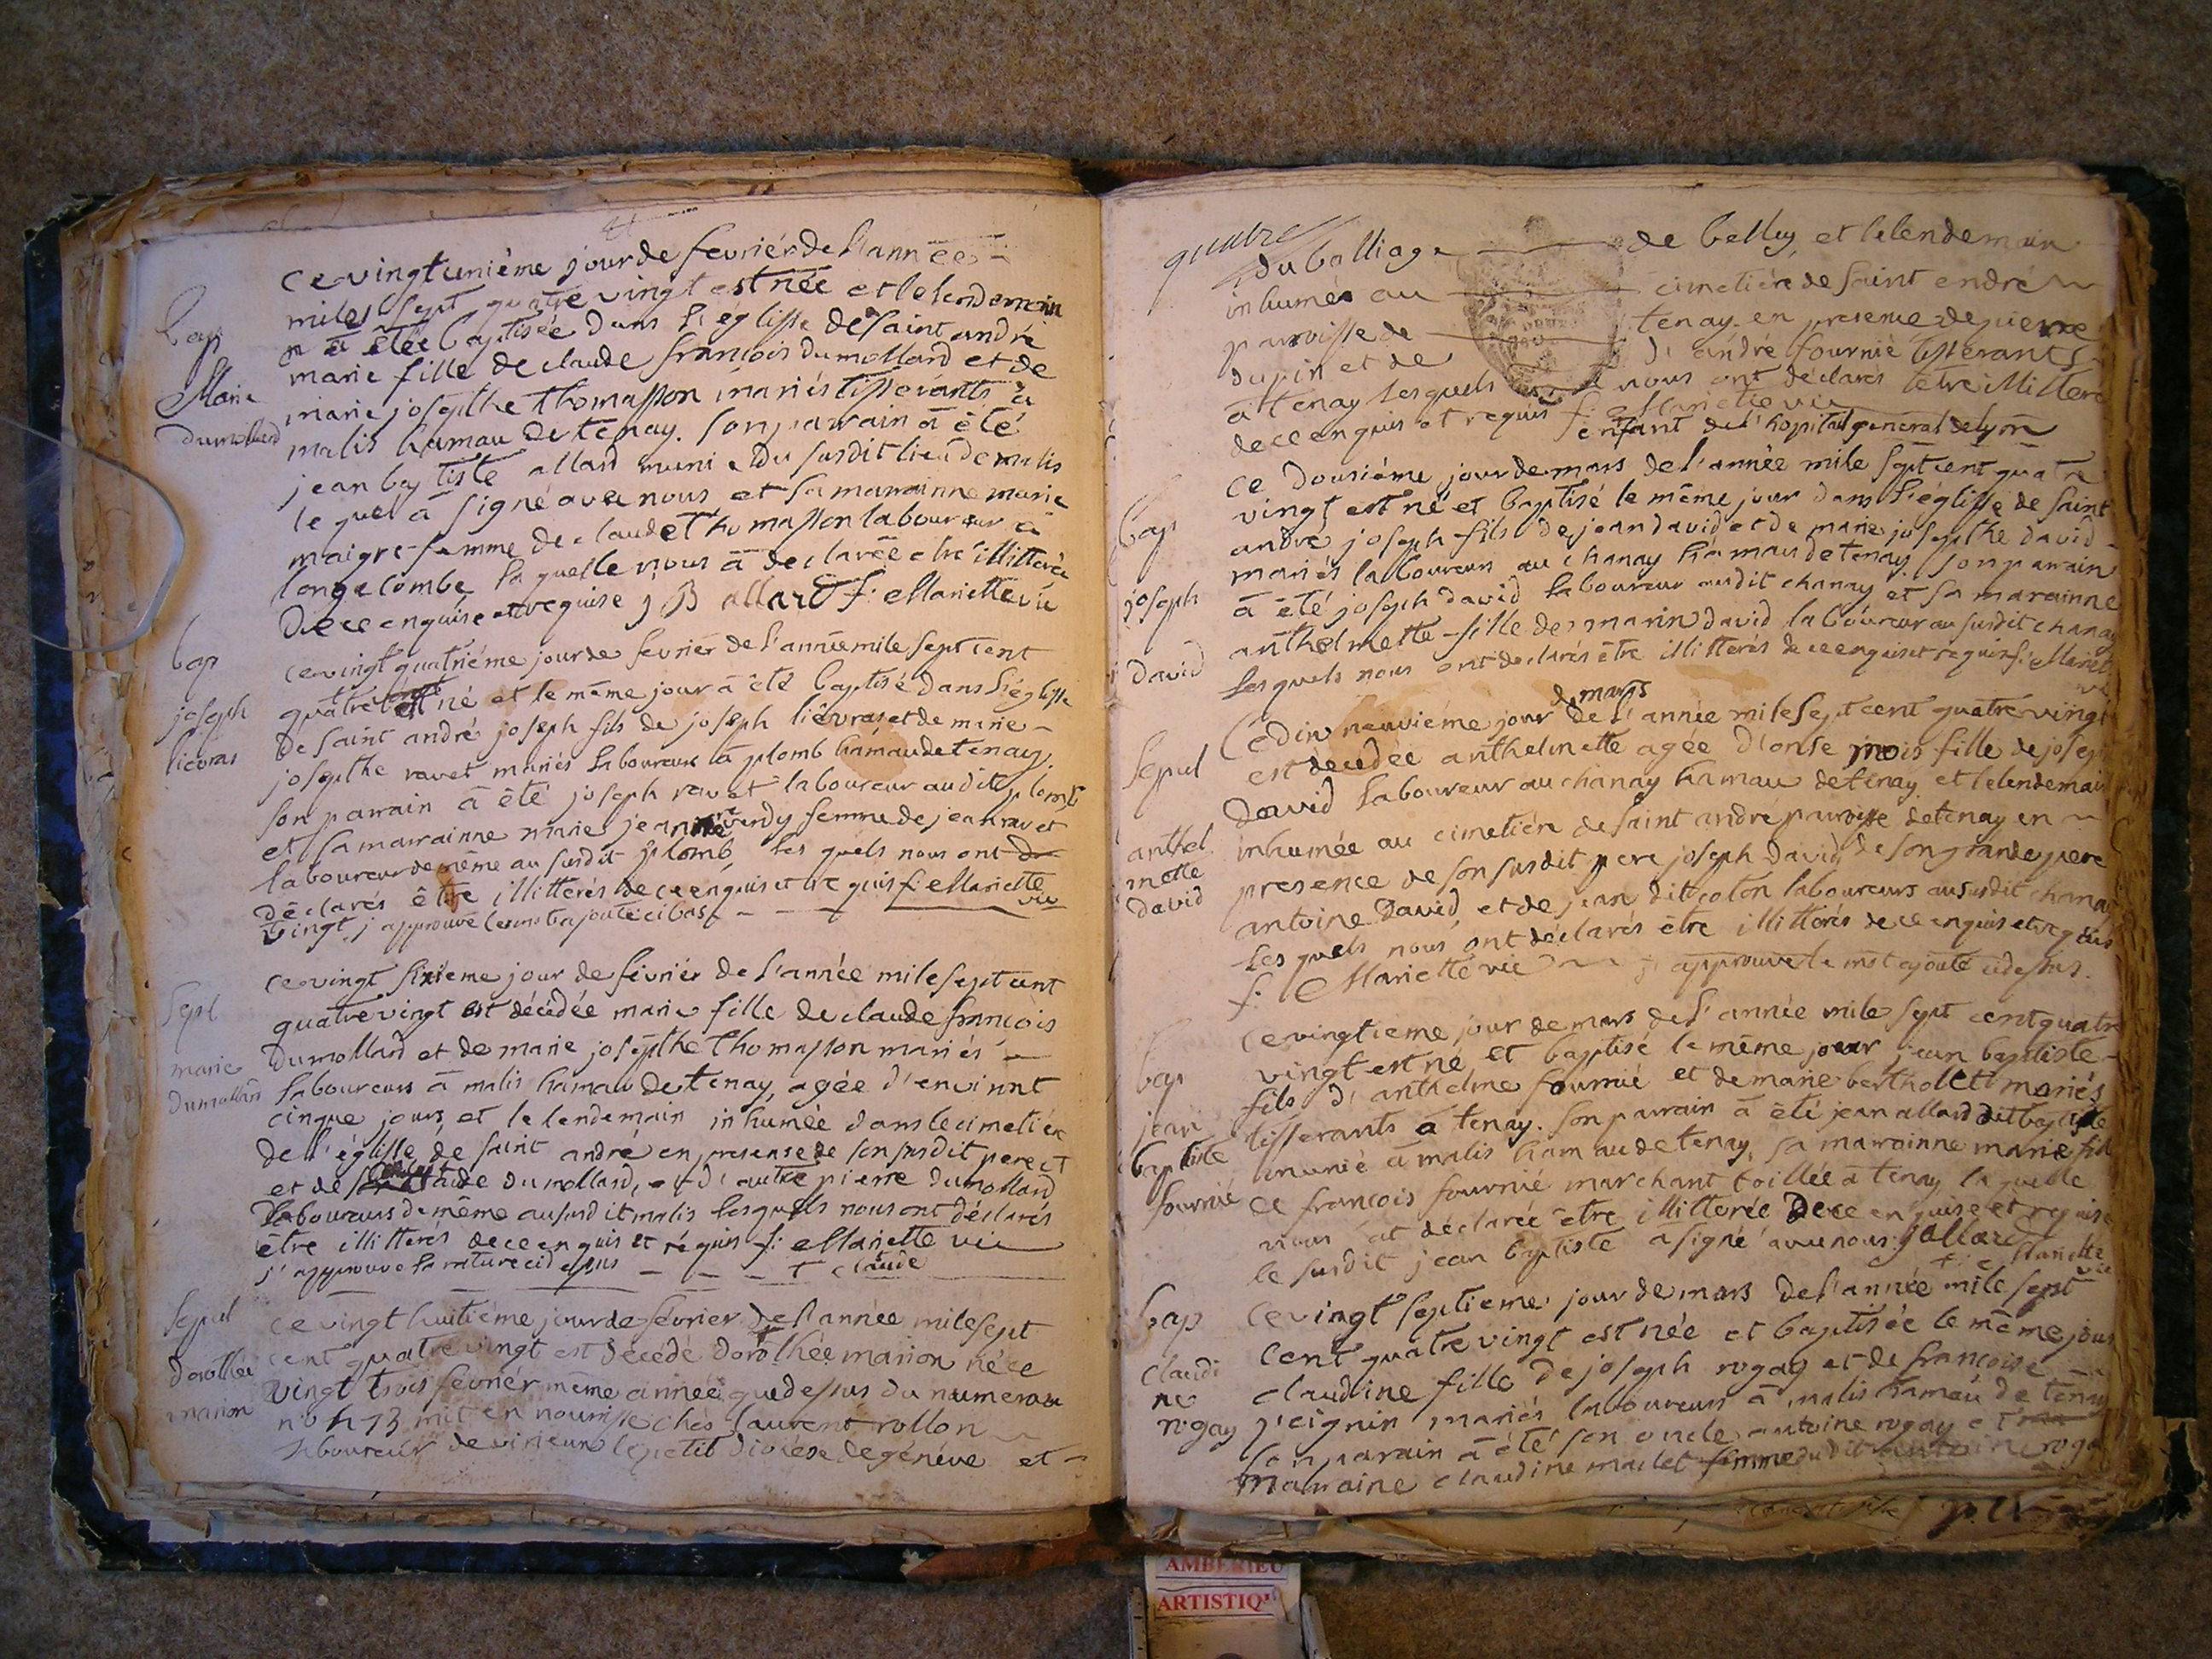 ce vingt unième jour de fevriér de l'année
mile sept quatre vingt est née et le lendemain
a été baptisée dans l'eglisse de saint andré
bap
marie fille de claude francois dumollard et de
Marie
marie josepthe thomasson mariés tisserants à
dumollard
malis hamau de tenay. son parrain à été
jean baptiste allard munie du susdit lieu de malis
le quel à signé avec nous et sa marrainne marie
maigre femme de claude thomasson laboureur à
longecombe la quelle nous à declarée etre illitterée
de ce enquise et requise j B allard f: Mariette vic
bap
ce vingt quatriéme jour de fevrier de l'année mile sept cent
joseph
quatre est né et le même jour à été baptisé dans l'églisse
lievras
de saint andré joseph fils de joseph lièvras et de marie
josepthe ravet mariés laboureurs à plomb hamau de tenay.
son parrain à été joseph ravet laboureur audit plomb
et sa marrainne marie jeanne verdy femme de jean ravet
laboureur de même au susdit plomb, les quels nous ont de
déclarés être illitterés de ce enquis et requis f: Mariette vic
vingt, j'approuve le mot ajouté ci bas
sepl
ce vingt sixieme jour de févriér de l'année mile sept cent
quatre vingt est décédée marie fille de claude francois
marie
dumollard et de marie josepthe thomasson mariés
dumollard
laboureurs à malis hamau de tenay, agée d'envinnt
cinque jours et le lendemain inhumée dans le cimetiére
de l'églisse de saint andré en presense de son susdit pere et
et de claude dumollard, et d'autre pierre dumollard
laboureurs de même au susdit malis lesquels nous ont déclarés
être illitterés de ce enquis et réquis f: Mariette vic
j'approuve la rature ci dessus + claude
sepul
ce vingt huitiéme jour de févriér de l'année mile sept
dorothée
cent quatre vingt est décédé dorothée marion née ce
marion
vingt trois févriér même année que dessus du numerau
n° 473 mit en nourrisse chés laurent rollon
laboureur de virieux le petit diocese de généve et
quatre
du balliage de belley et le lendemain
inhumée au cimetiére de saint endré
parroisse de tenay en presense de pierre
dupin et de d'andré fournié tisserants
à tenay lesquels nous ont déclarés être illitteré
de ce enquis et requis f: Mariette vic
enfant de l'hopital general de lyon
ce dousiéme jour de mars de l'année mile sept cent quatre
bap
vingt est né et baptisé le même jour dans l'églisse de saint
andré joseph fils de jean david et de marie josepthe david
joseph
mariés laboureurs au chanay hamau de tenay son parrain
david
à été joseph david laboureur au dit chanay et sa marainne
anthelmette fille de marin david laboureur au susdit chanay
les quels nous ont declarés être illitterés de ce enquis et requis f: Mariet
vic
de mars
sepul
ce dix neuviéme jour de l'année mile sept cent quatre vingt
est décédée anthelmette agée d'onse mois fille de joseph
david laboureur au chanay hamau de tenay et le lendemain
anthel
inhumée au cimetiére de saint andré parroisse de tenay en
mette
presence de son susdit pere joseph david de son grande pere
david
antoine david et de jean dit coton laboureurs au susdit chanay
les quels nous ont déclarés être illitterés de ce enquis et requis
f: Mariette vic j'approuve le mot ajouté ci dessus.
ce vingtieme jour de mars de l'année mile sept cent quatre
bap
vingt est né et baptisé le même jour jean baptiste
jean
fils d'anthelme fournié et de marie berthollet mariés
baptiste
tisserants à tenay. son parrain à été jean allard dit baptiste
fournié
munié à malis hamau de tenay, sa marrainne marie fille
de francois fournié marchant toillée à tenay la quelle
nous at déclarée être illitterée de ce enquise et requise
le susdit jean baptiste a signé avec nous J allard
f: Mariette vic
bap
ce vingt septieme jour de mars de l'année mile sept
claudi
cent quatre vingt est née et baptisée le même jour
ne
claudine fille de joseph rogay et de francoise
rogay
peignin mariés laboureurs à malis hamau de tenay
son parain à été son oncle antoine rogay et
marraine claudine maclet femme du dit antoine rogay
AMBERIEU
ARTISTIQU